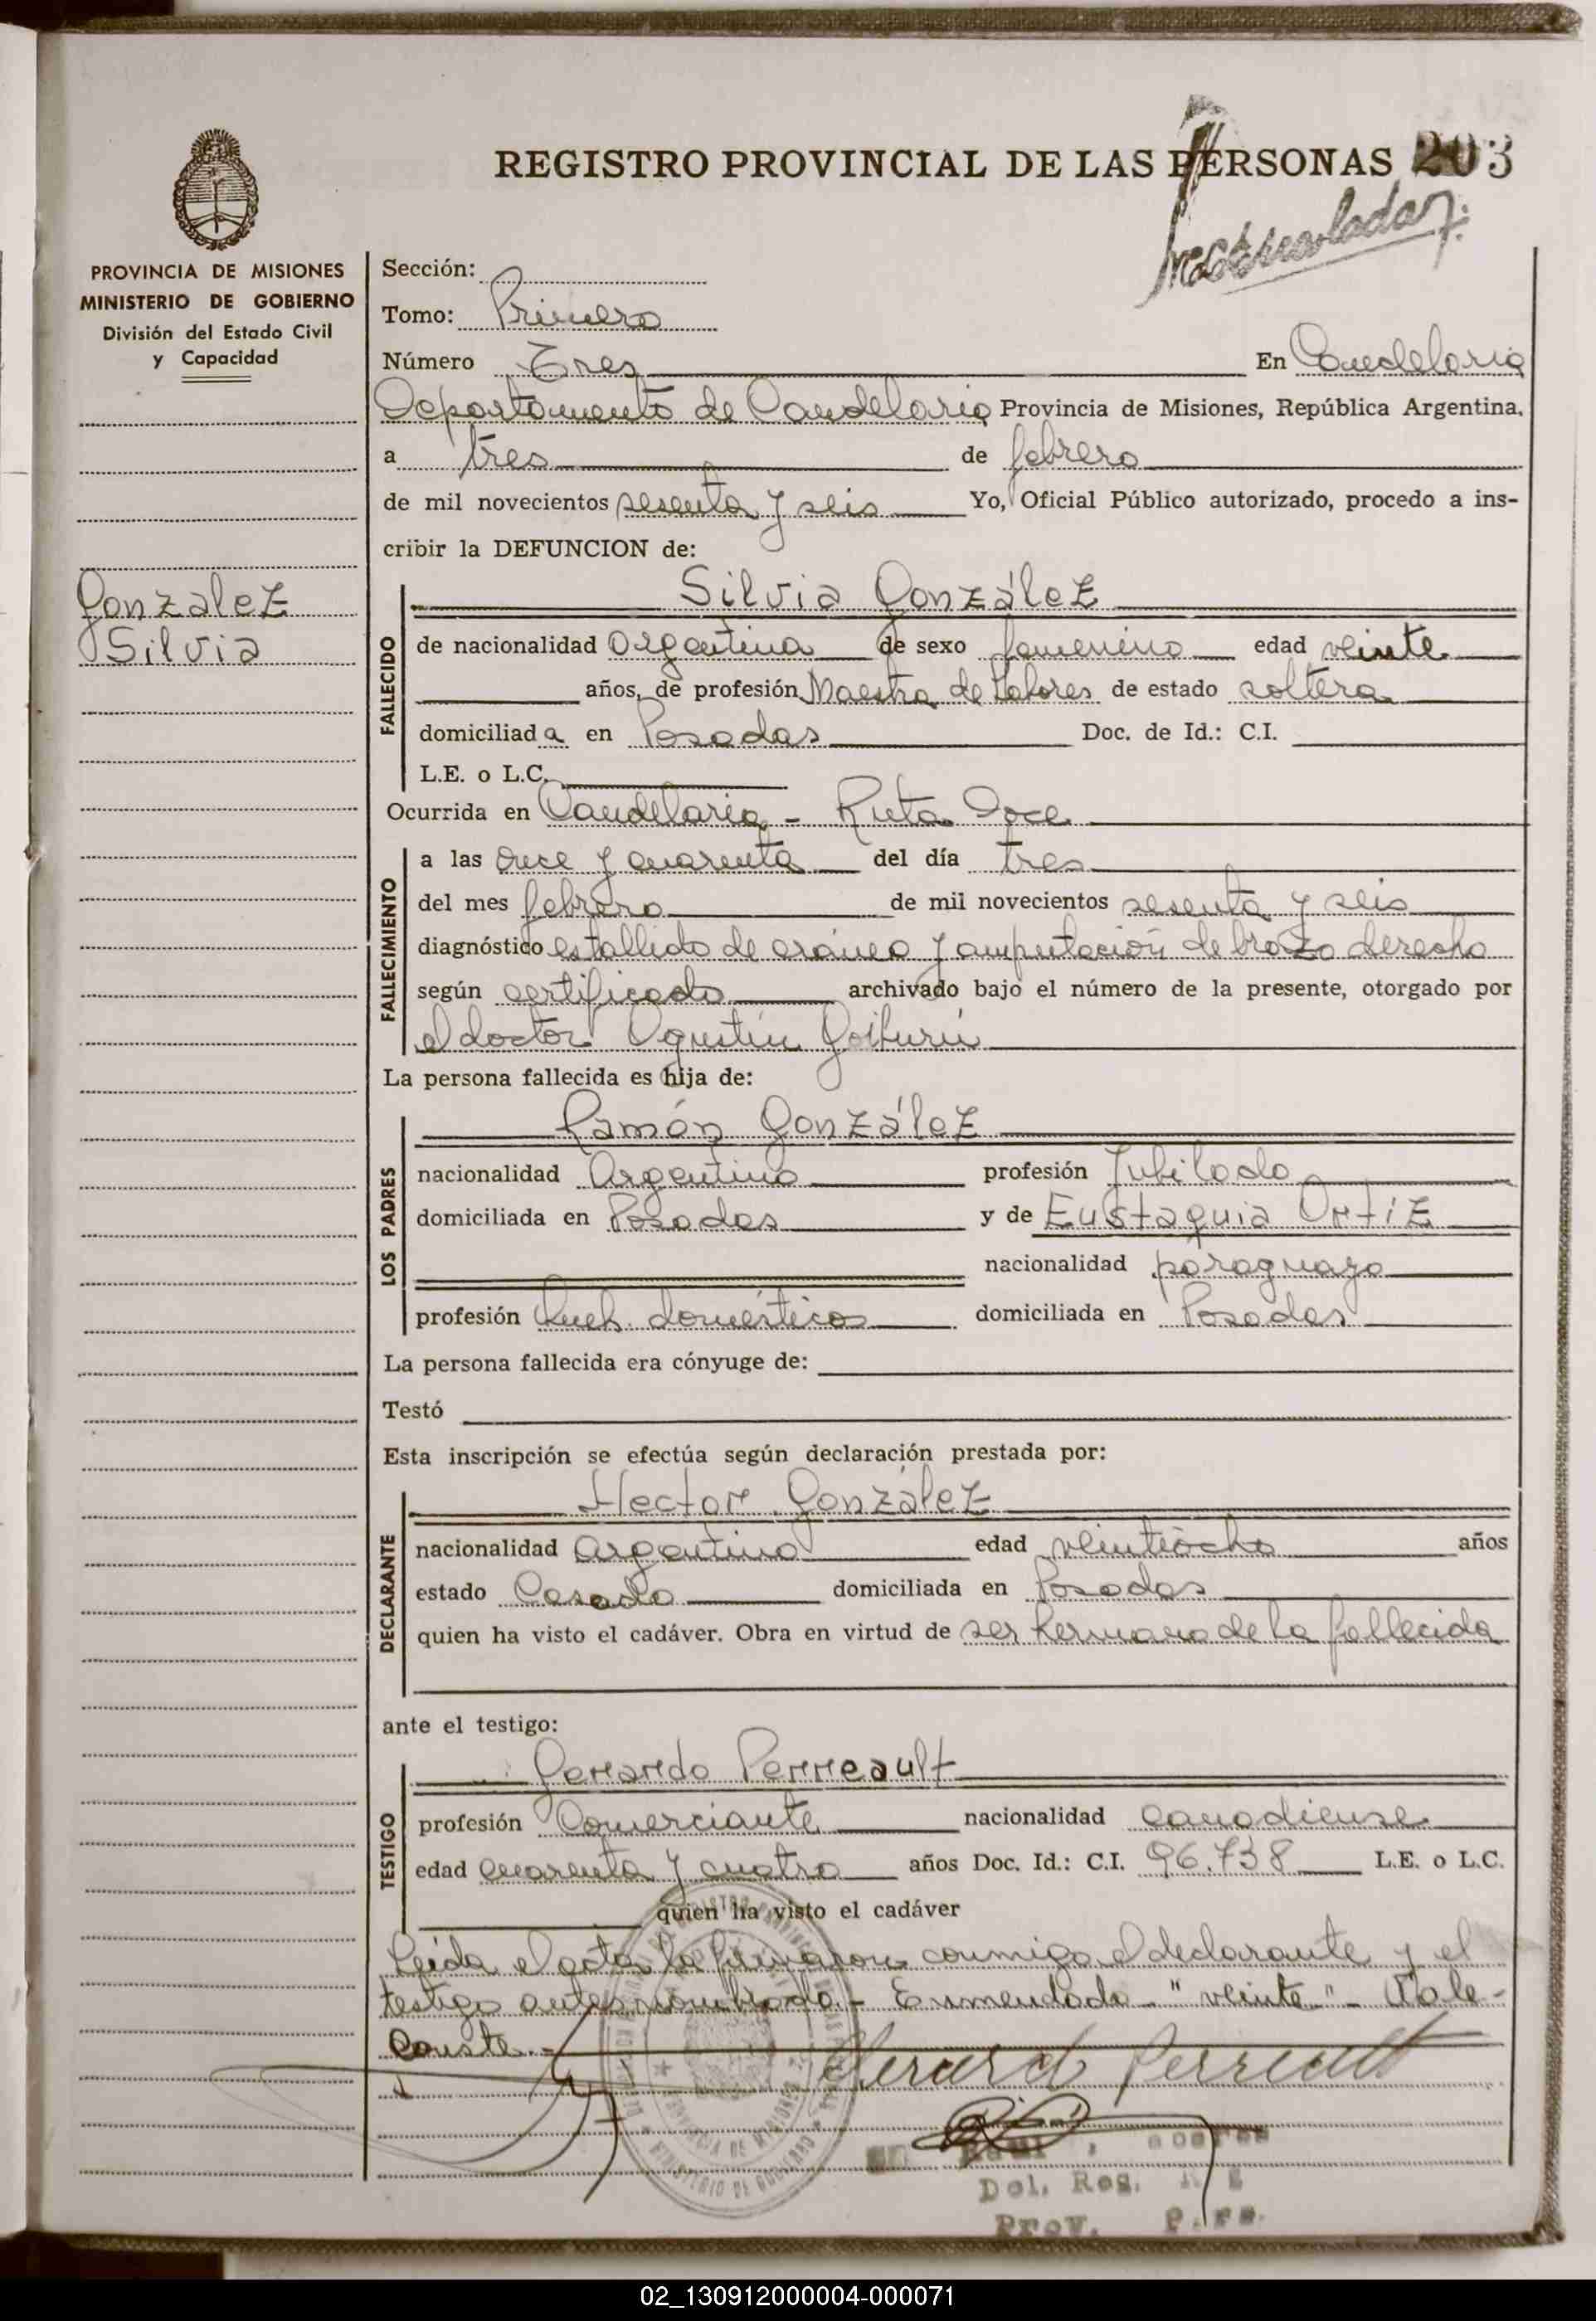 REGISTRO PROVINCIAL DE LAS PERSONAS 203
PROVINCIA DE MISIONES
MINISTERIO DE GOBIERNO
División del Estado Civil
y Capacidad
Sección:
Tomo: Primero
Número Tres En Candelaria
Departamento de Candelaria Provincia de Misiones, República Argentina,
a tres de febrero
de mil novecientos sesenta y seis Yo, Oficial Público autorizado, procedo a ins-
cribir la DEFUNCION de:
Gonzalez
Silvia
FALLECIDO
Silvia González
de nacionalidad Argentina de sexo femenino edad veinte
años, de profesión Maestra de labores de estado soltera
domiciliada en Posadas Doc. de Id.: C.I.
L.E. o L.C.
Ocurrida en Candelaria - Ruta Doce
FALLECIMIENTO
a las once y cuarenta del día tres
del mes febrero de mil novecientos sesenta y seis
diagnóstico estallido de cráneo y amputación de brazo derecho
según certificado archivado bajo el número de la presente, otorgado por
el doctor Agustín Goiburú
La persona fallecida es hija de:
LOS PADRES
Ramón González
nacionalidad Argentino profesión Jubilado
domiciliada en Posadas y de Eustaquia Ortiz
nacionalidad paraguaya
profesión Queh. domésticos domiciliada en Posadas
La persona fallecida era cónyuge de:
Testó
Esta inscripción se efectúa según declaración prestada por:
DECLARANTE
Hector González
nacionalidad Argentino edad veintiocho años
estado Casado domiciliada en Posadas
quien ha visto el cadáver. Obra en virtud de ser hermano de la fallecida
ante el testigo:
TESTIGO
Gerardo Perreault
profesión Comerciante nacionalidad canadiense
edad cuarenta y cuatro años Doc. Id.: C.I. 96.738 L.E. o L.C.
quien ha visto el cadáver
Leída el acta la firmaron conmigo el declarante y el
testigo antes nombrado.- Enmendado "veinte" - Vale-
Conste.-
Gerard Perreault
Del. Reg.
Prov. Pers.
02_130912000004-000071